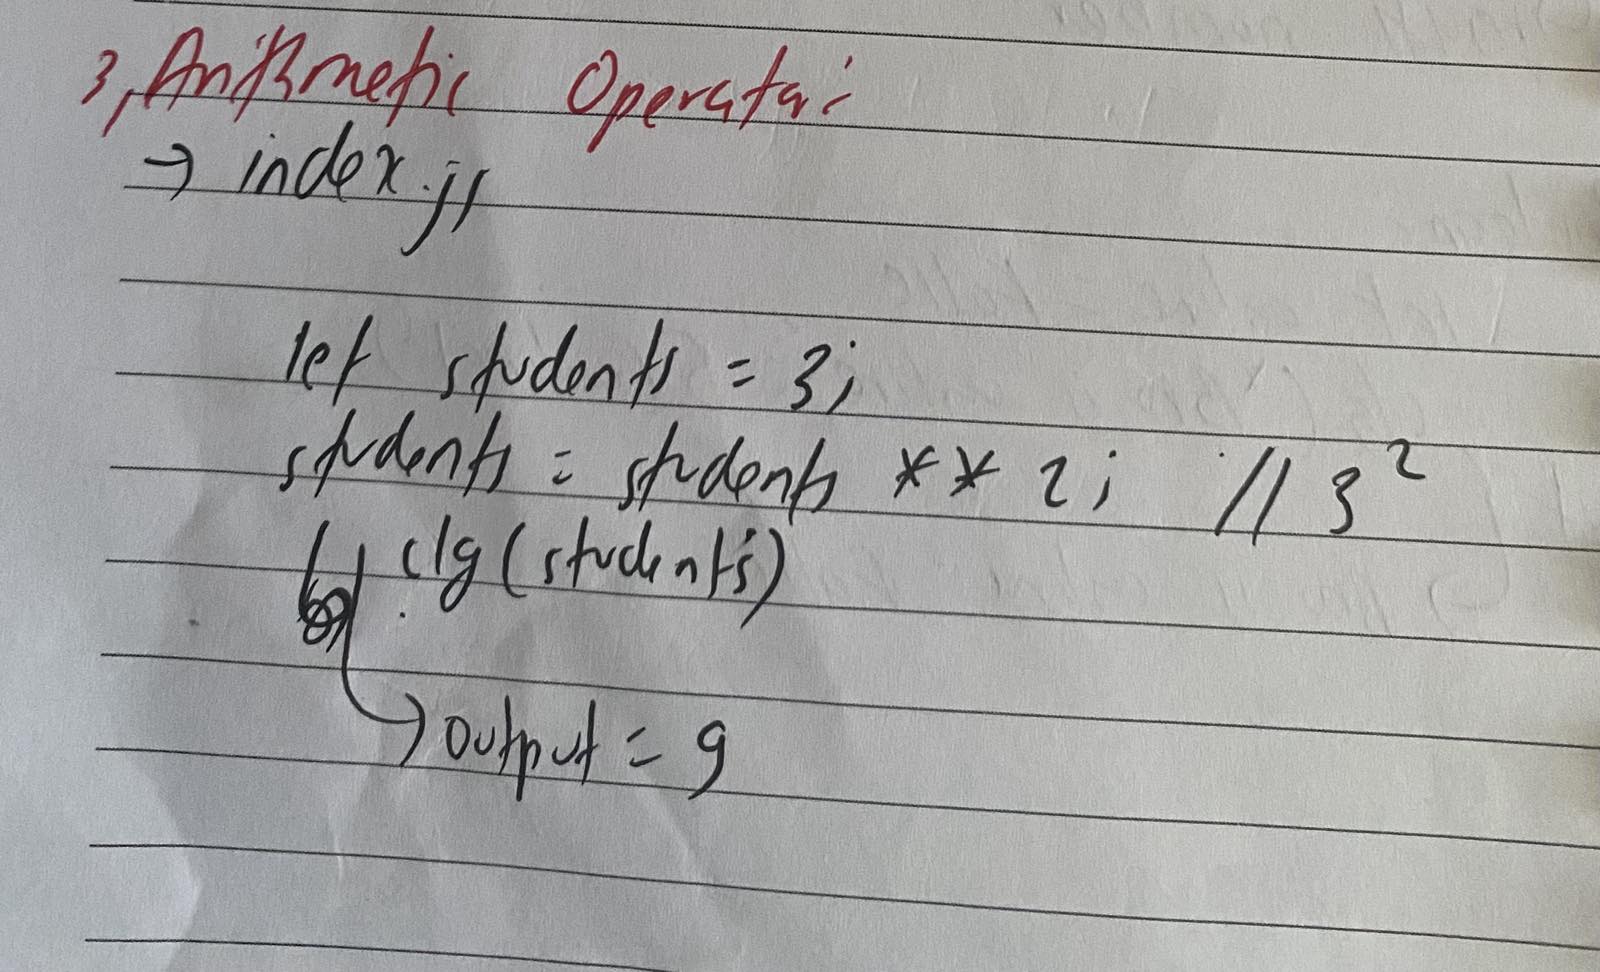 3, Arithmetic Operator:
→ index.js
let students = 3;
students = students ** 2; // 3²
clg(students)
→ output = 9